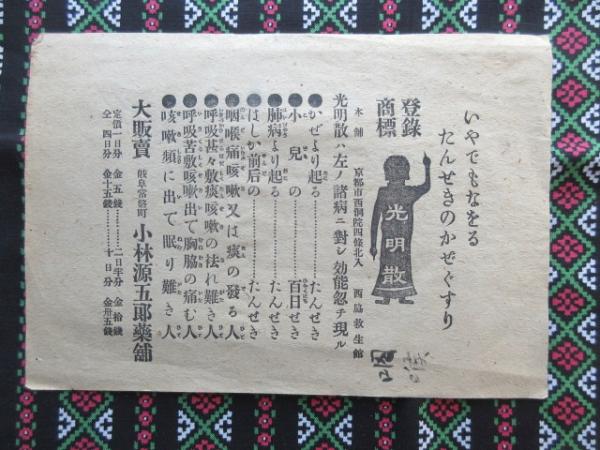 いやでもなをる
たんせきのかぜぐすり
登錄
商標
光明散
本舗 京都市西洞院四條北入 西脇救生館
光明散ハ左ノ諸病ニ對シ効能忽チ現ル
●かぜより起る………たんせき
●小兒の………百日ぜき
●肺病より起る………たんせき
●はしか前后の………たんせき
●咽喉痛咳嗽又は痰の發る人
●呼吸甚々敷痰咳嗽の祛れ難き人
●呼吸苦敷咳嗽出て胸脇の痛む人
●咳嗽頻に出て眠り難き人
大販賣 岐阜常磐町 小林源五郎藥舖
定價一日分 金五錢………二日半分 金拾錢
仝 四日分 金十五錢………十日分 金卅五錢